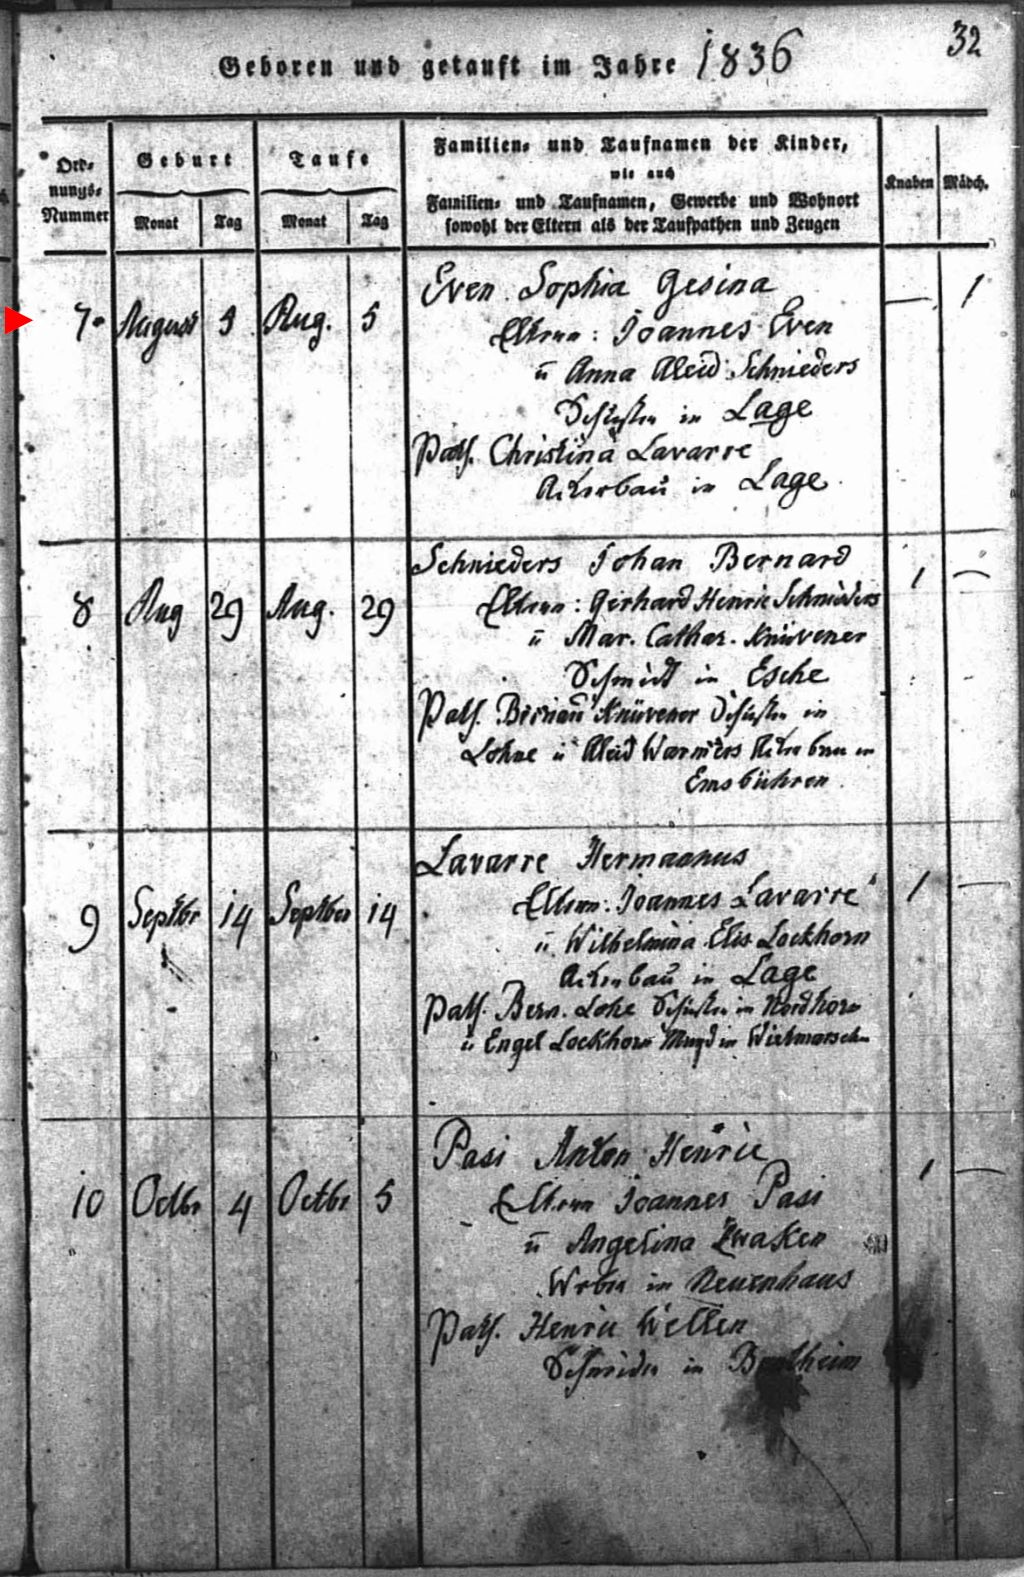 32
Geboren und getauft im Jahre 1836
Ord-
nungs-
Nummer
Geburt
Monat Tag
Taufe
Monat Tag
Familien- und Taufnamen der Kinder,
wie auch
Familien- und Taufnamen, Gewerbe und Wohnort
sowohl der Eltern als der Taufpathen und Zeugen
Knaben Mädch.
7. August Aug. 5 — 1
Even Sophia Gesina
Eltern: Joannes Even
ū Anna Aleid Schnieders
in Lage
Path. Christina Lavarre
Ackerbau in Lage.
8 Aug 29 Aug. 29 1 —
Schnieders Johan Bernard
Eltern: Gerhard Henric Schnieders
ū Mar. Cathar. Knüvener
Schmidt in Esche
Path. Knüvener in
Lohne ū Aleid Warmers in
Emsbühren.
9 Septbr 14 Septber 14 1 —
Lavarre Hermannus
Eltern: Joannes Lavarre
ū Wilhelmina Elis Lockhorn
Ackerbau in Lage
Path. Bern. in Nordhorn
ū Engel Lockhorn Magd in Wietmarschen
10 Octbr 4 Octbr 5 1 —
Pasi Anton Henric
Eltern Joannes Pasi
ū Angelina Zwaken
Weber in Neuenhaus
Path. Henric
Schneider in Bentheim